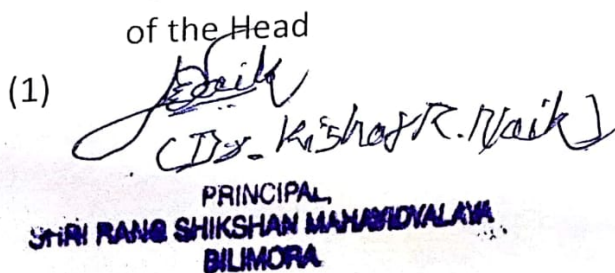 of the Head
(1)
(Dr. Kishor R. Naik)
PRINCIPAL,
SHRI RANG SHIKSHAN MAHAVIDYALAYA
BILIMORA